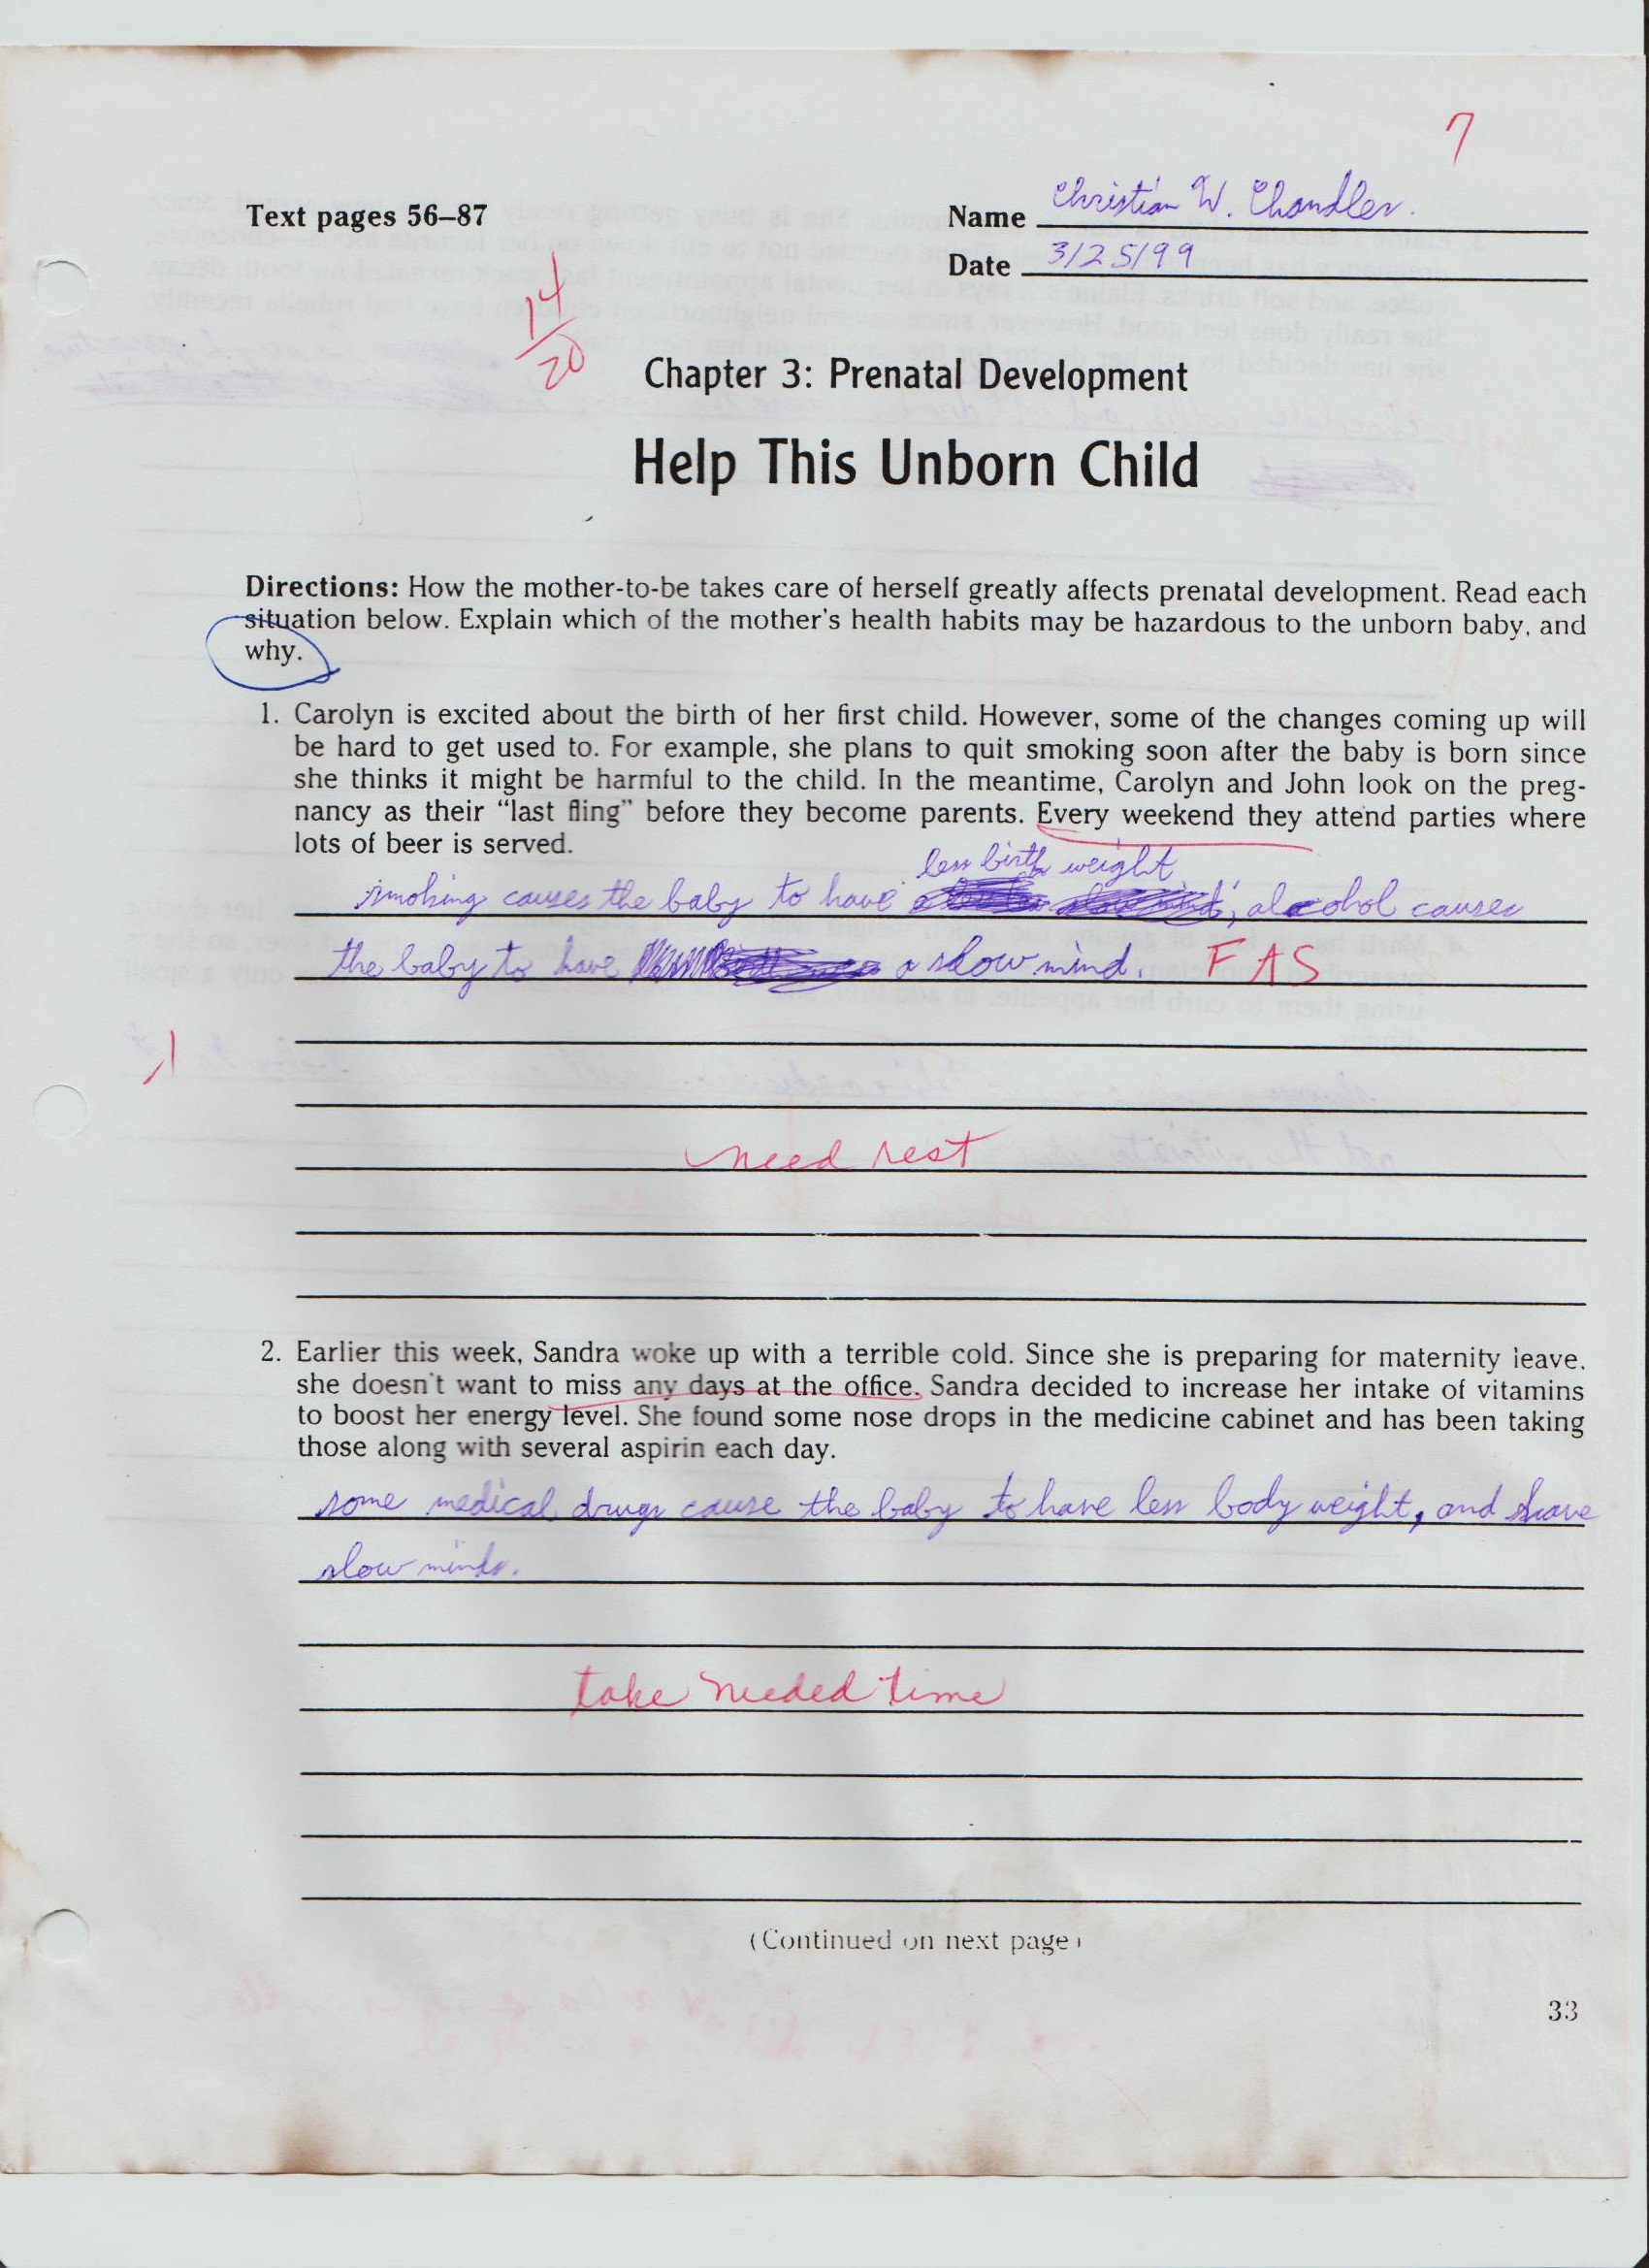 7
Text pages 56–87
Name Christian W. Chandler.
Date 3/25/99
14
20
Chapter 3: Prenatal Development
Help This Unborn Child
Directions: How the mother-to-be takes care of herself greatly affects prenatal development. Read each
situation below. Explain which of the mother's health habits may be hazardous to the unborn baby, and
why.
1. Carolyn is excited about the birth of her first child. However, some of the changes coming up will
be hard to get used to. For example, she plans to quit smoking soon after the baby is born since
she thinks it might be harmful to the child. In the meantime, Carolyn and John look on the preg-
nancy as their "last fling" before they become parents. Every weekend they attend parties where
lots of beer is served.
less birth weight
smoking causes the baby to have ; alcohol causes
the baby to have a slow mind. FAS
need rest
2. Earlier this week, Sandra woke up with a terrible cold. Since she is preparing for maternity leave,
she doesn't want to miss any days at the office. Sandra decided to increase her intake of vitamins
to boost her energy level. She found some nose drops in the medicine cabinet and has been taking
those along with several aspirin each day.
some medical drugs cause the baby to have less body weight, and have
slow minds.
take needed time
(Continued on next page)
33